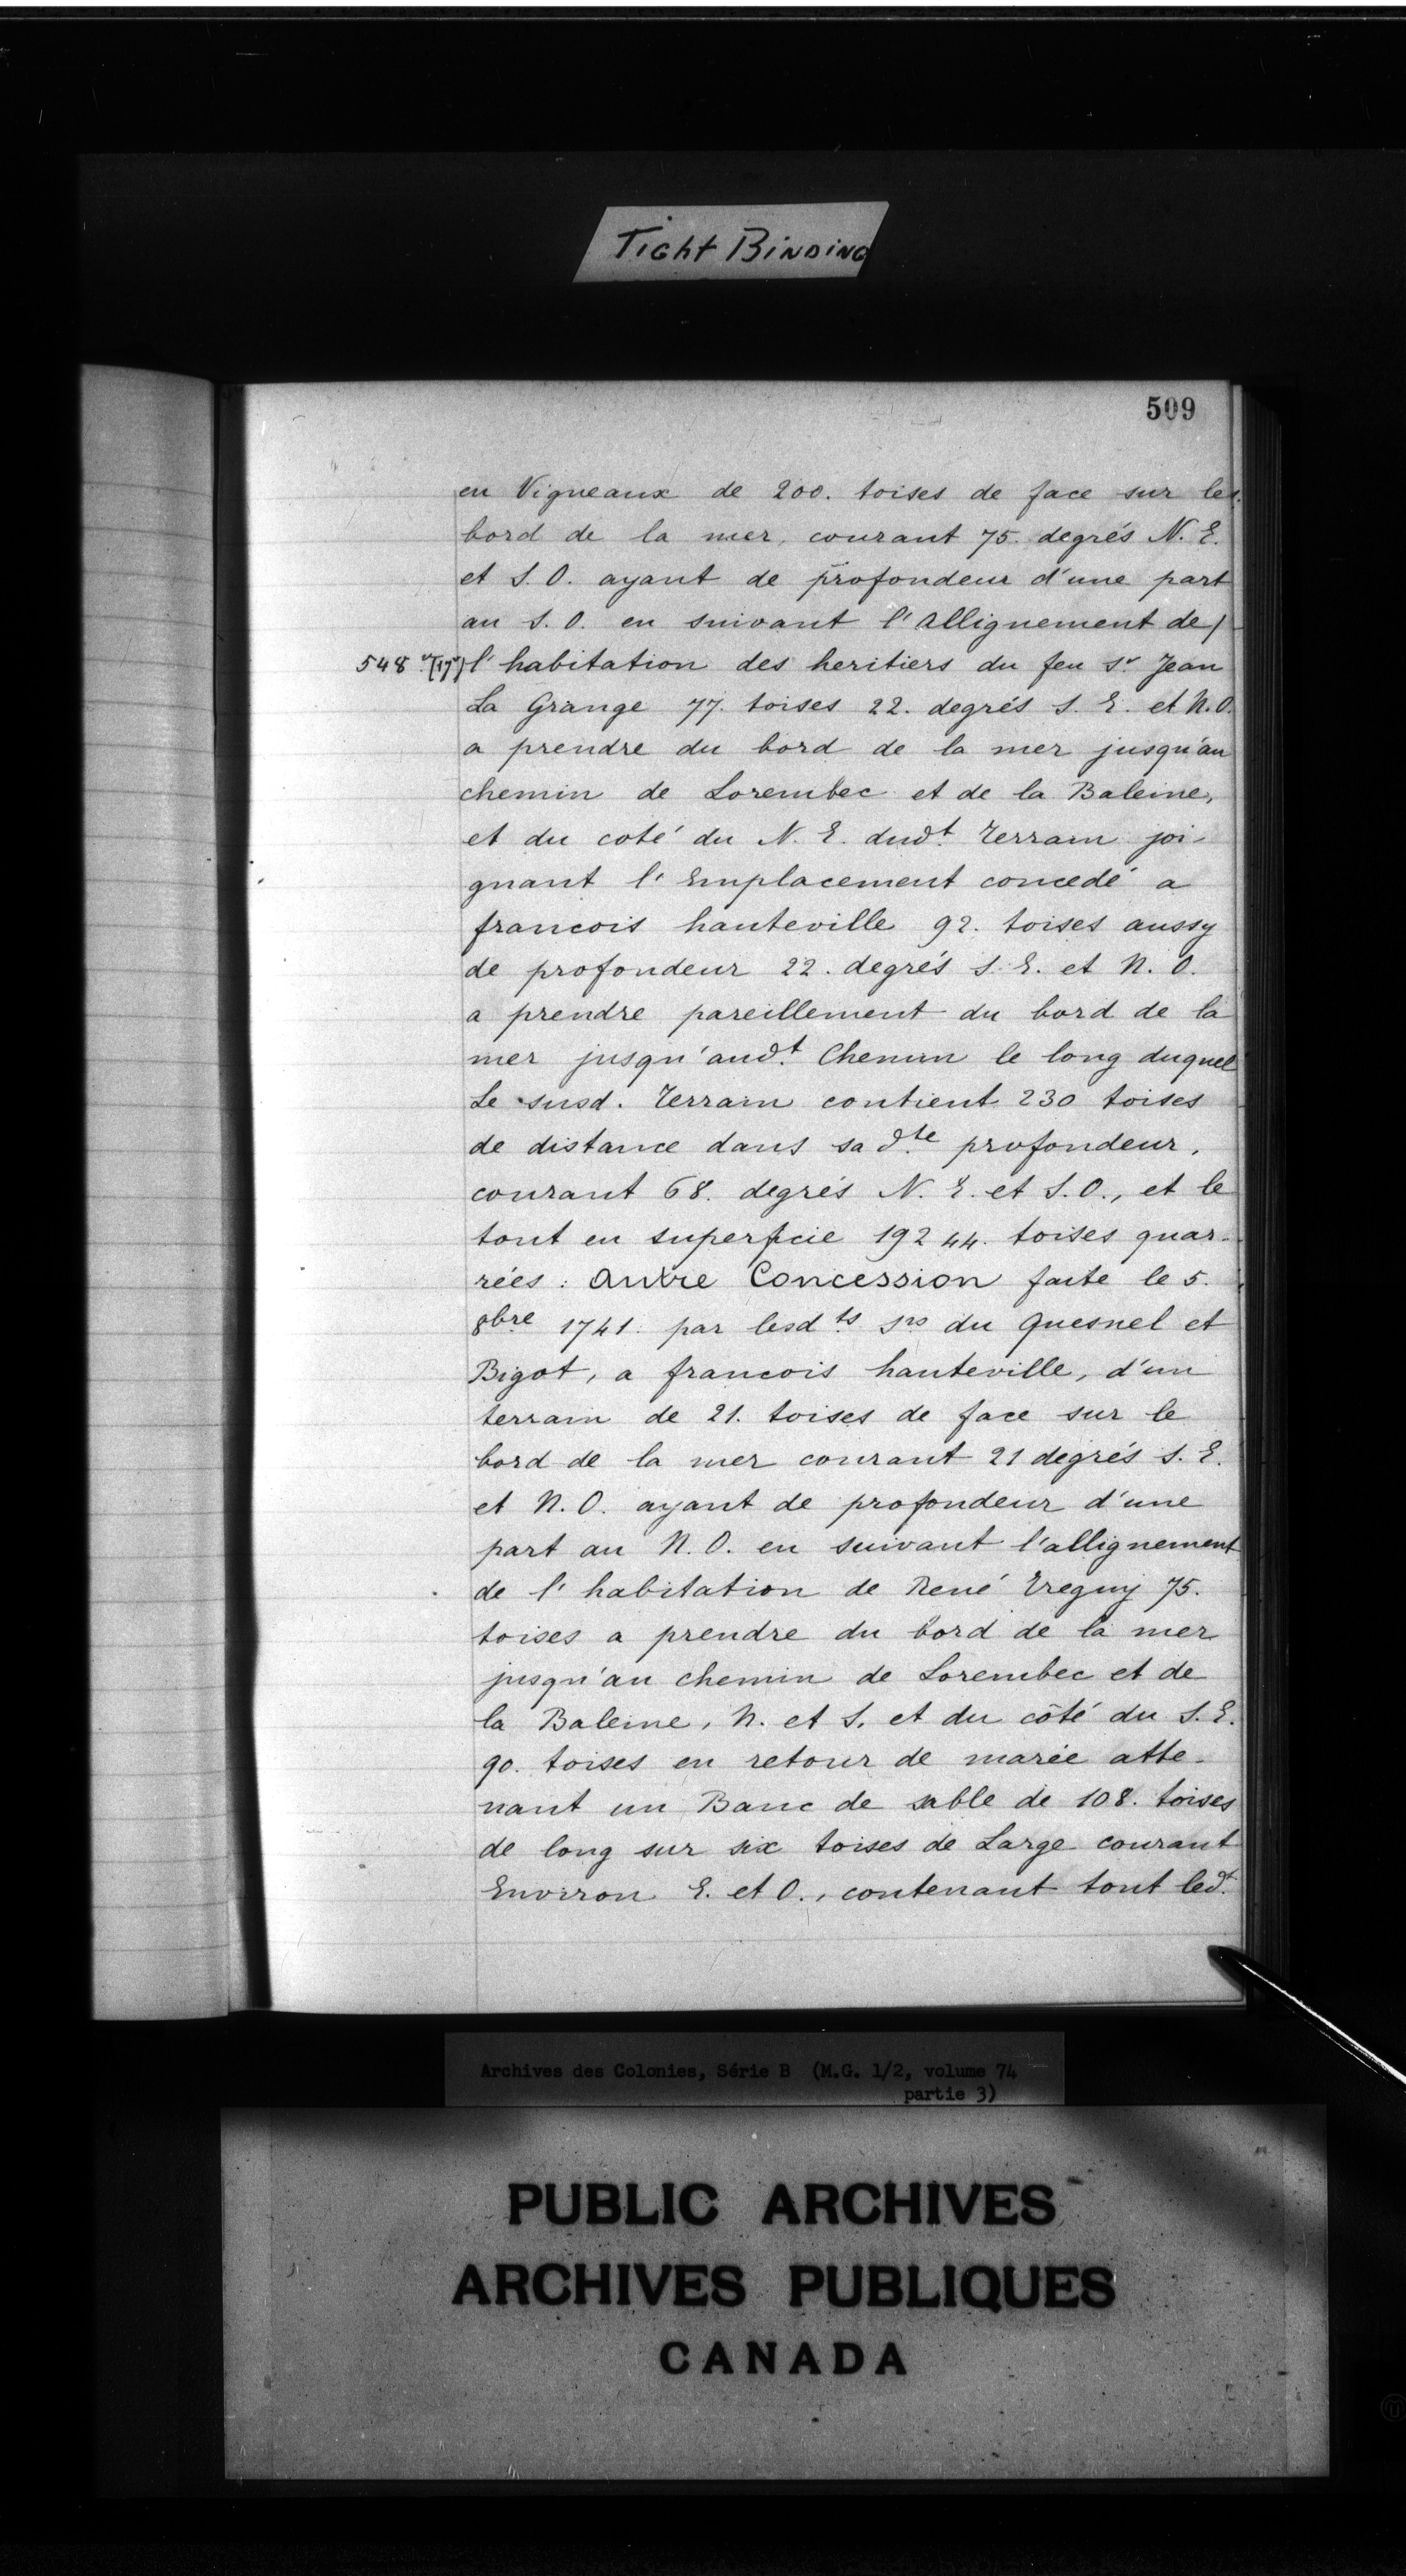 Tight Binding
509
en Vigneaux de 200. toises de face sur les
bord de la mer, courant 75. degrés N. E.
et S. O. ayant de profondeur d'une part
au S. O. en suivant l'allignement de/
548 l'habitation des heritiers du feu Sr Jean
La Grange 77. toises 22. degrés S. E. et N. O.
a prendre du bord de la mer jusqu'au
chemin de Lorembec et de la Baleine,
et du coté du N. E. dudt. Terrain joi-
gnant l'Emplacement concedé a
francois hauteville 92. toises aussy
de profondeur 22. degrés S. E. et N. O.
a prendre pareillement du bord de la
mer jusqu'audt. Chemin le long duquel
Le susd. Terrain contient 230 toises
de distance dans sa d.te profondeur,
courant 68. degrés N. E. et S. O., et le
tout en superficie 19244. toises quar-
rées : Autre Concession faite le 5.
8bre 1741. par lesd.ts srs du Quesnel et
Bigot, a francois hauteville, d'un
terrain de 21. toises de face sur le
bord de la mer courant 21 degrés S. E.
et N. O. ayant de profondeur d'une
part au N. O. en suivant l'allignement
de l'habitation de René Treguy 75.
toises a prendre du bord de la mer
jusqu'au chemin de Lorembec et de
la Baleine, N. et S. et du côté du S. E.
90. toises en retour de marée atte-
nant un Banc de sable de 108. toises
de long sur six toises de Large courant
Environ E. et O., contenant tout led.t
Archives des Colonies, Série B (M.G. 1/2, volume 74
partie 3)
PUBLIC ARCHIVES
ARCHIVES PUBLIQUES
CANADA